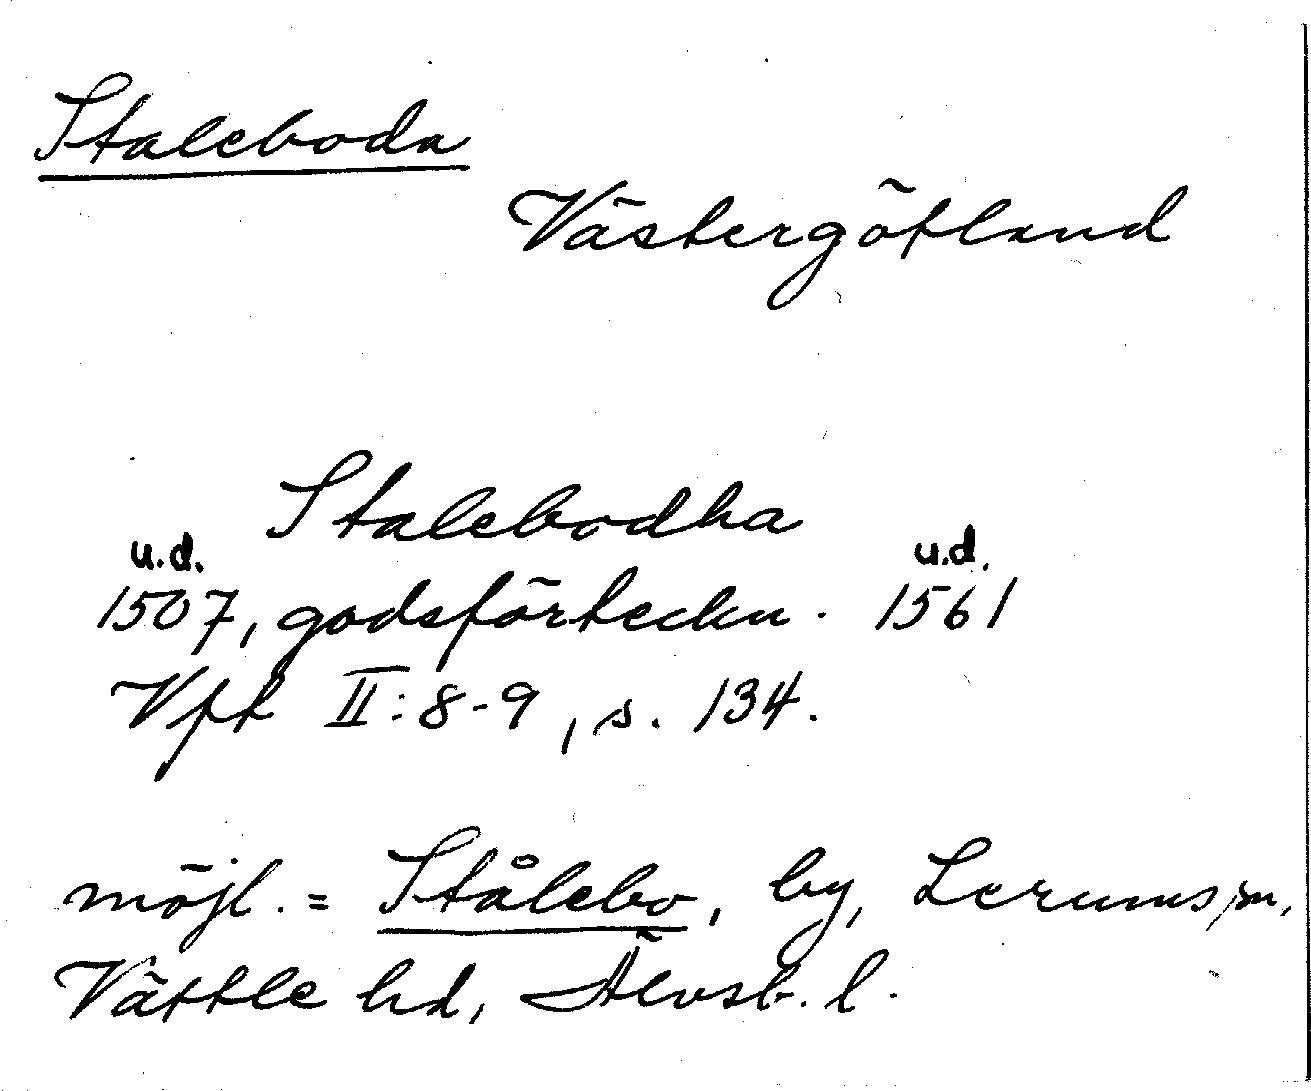 Staleboda
Västergötland
Stalebodha
u.d. u.d.
1507, godsförteckn. 1561
Vft II:8-9, s. 134.
möjl. = Stålebo, by, Lerums sn,
Vättle hd, Älvsb. l.